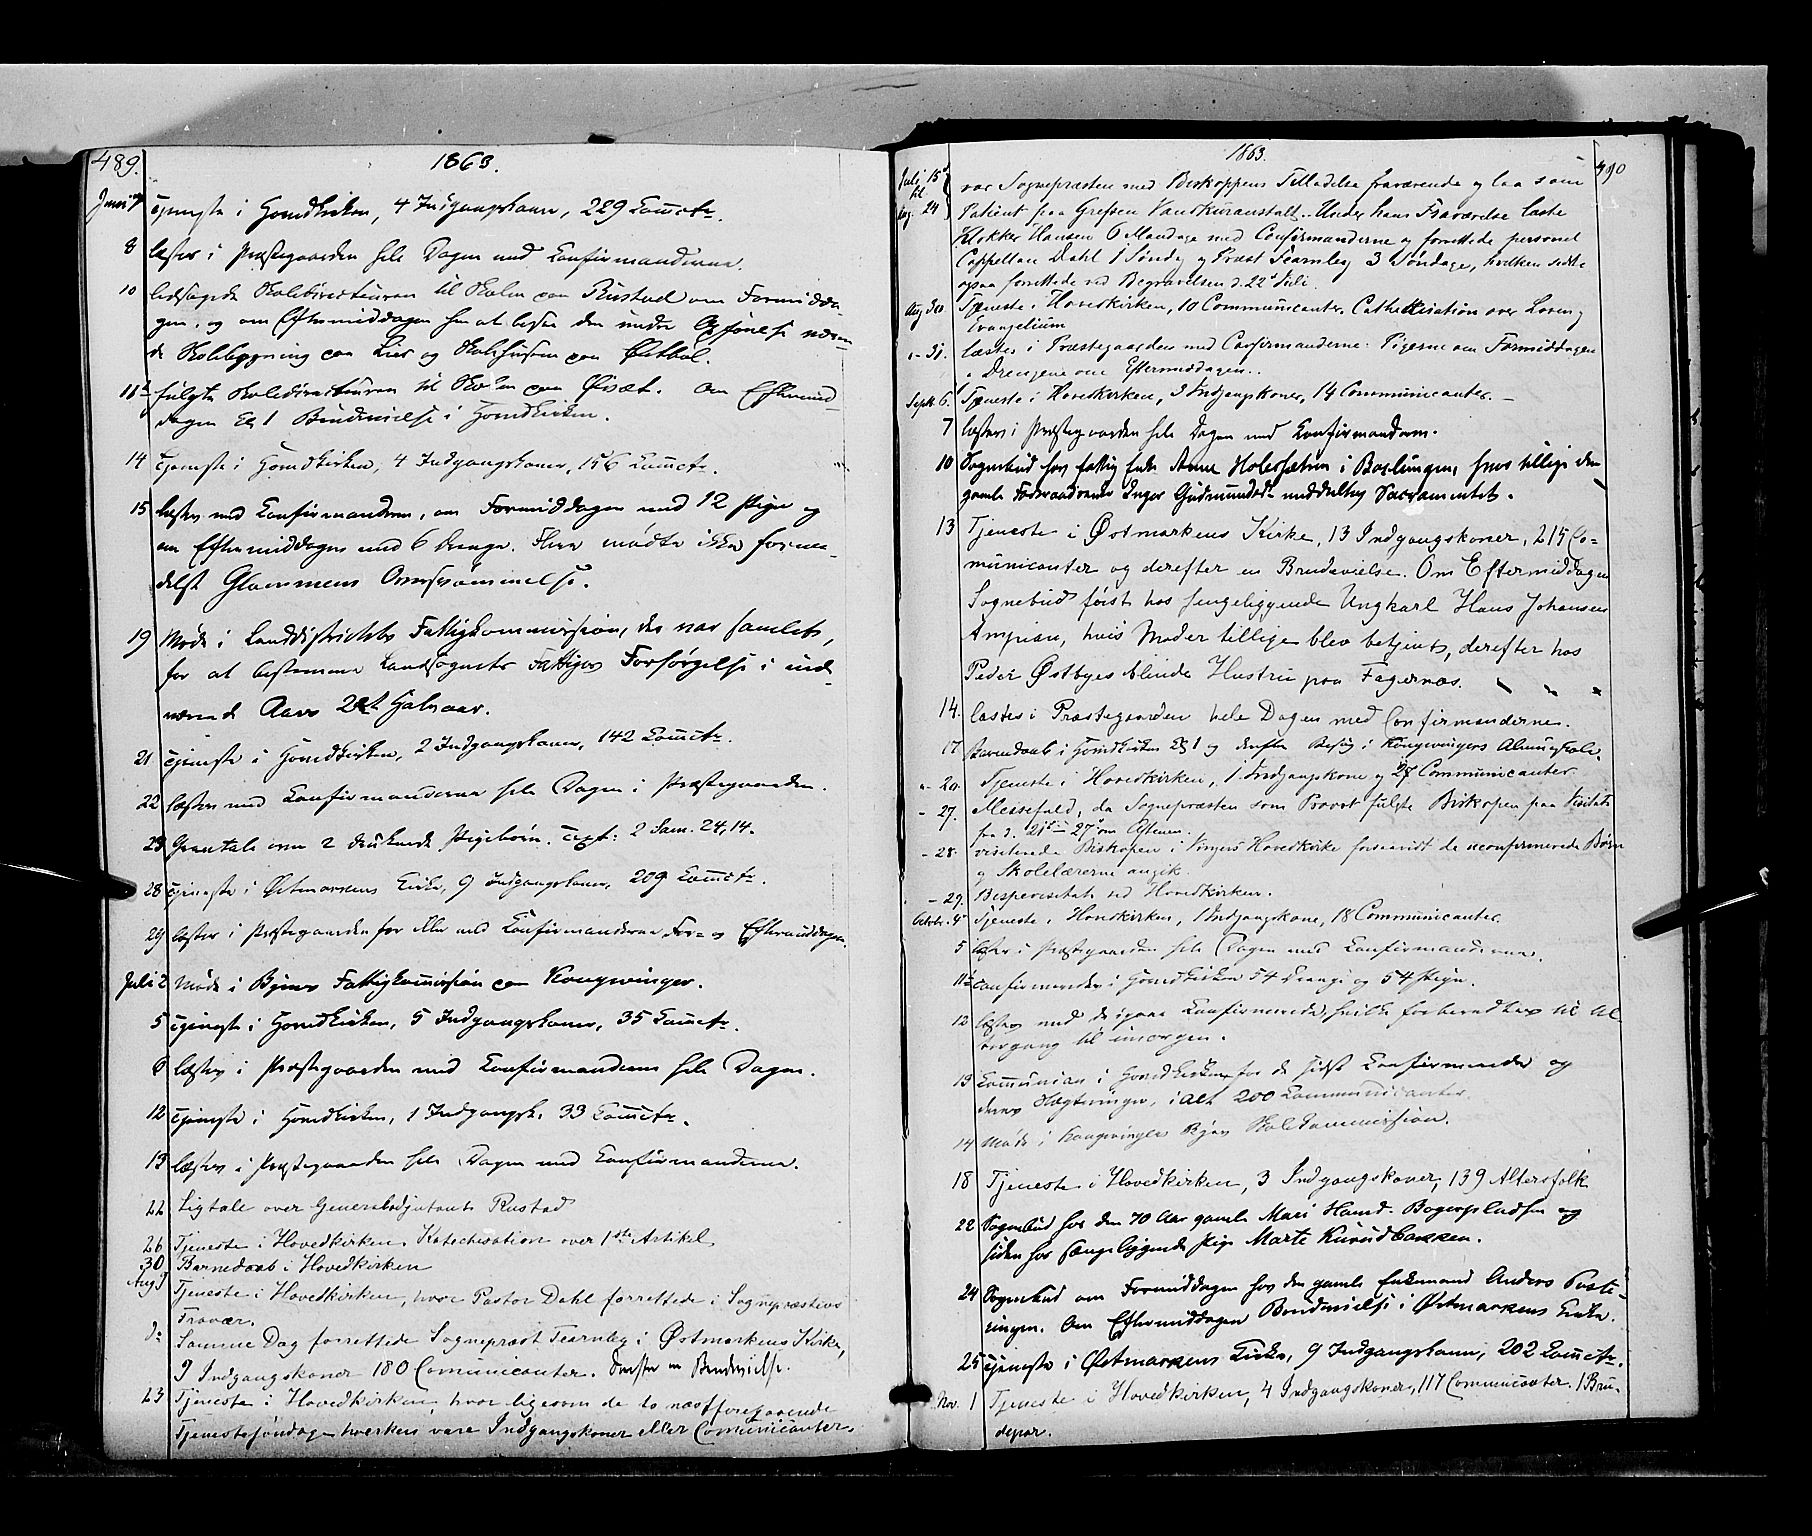 489.
1863.
Juni 7 Tjeneste i Hovedkirken, 4 Indgangskoner, 229 Commctr.
8 læstes i Præstegaarden hele Dagen med Confirmanderne.
10 ledsagede Skoledirecteuren til Skolen paa Rustad om Formidda-
gen, og om Eftermiddagen for at bese den under Opførelse væren-
de Skolebygning paa Lier og Skolehuset paa
11te fulgte Skoledirecteuren til Skolen paa Øisæt. Om Eftermid-
dagen Kl 1 Brudevielse i Hovedkirken.
14 Tjeneste i Hovedkirken, 4 Indgangskoner, 156 Commctr.
15 læstes med Confirmanderne, om Formiddagen med 12 Piger og
om Eftermiddagen med 6 Drenge. Flere mødte ikke forme-
delst Glommens Oversvømmelse.
19 Møde i Landdistriktets Fattigkommission, der var samlet,
for at bestemme Landsognets Fattiges Forsørgelse i ind-
værende Aars 2det Halvaar.
21 Tjeneste i Hovedkirken, 2 Indgangskoner, 142 Commctr.
22 læstes med Confirmanderne hele Dagen i Præstegaarden.
23 Gravtale over 2 druknede Pigebørn. Text: 2 Sam. 24,14.
28 Tjeneste i Østmarkens Kirke, 9 Indgangskoner, 209 Commctr.
29 læstes i Præstegaarden for Alle med Confirmanderne For- og Eftermiddagen.
Juli 2 Møde i Byens Fattigkommission paa Kongsvinger.
5 Tjeneste i Hovedkirken, 5 Indgangskoner, 35 Commctr.
6 læstes i Præstegaarden med Confirmanderne hele Dagen.
12 Tjeneste i Hovedkirken, 1 Indgangsk. 33 Commctr.
13 læstes i Præstegaarden hele Dagen med Confirmanderne.
22 Ligtale over Generaladjutant Rustad
26 Tjeneste i Hovedkirken. Katechisation over 1ste Artikel
30 Barnedaab i Hovedkirken
Aug 9 Tjeneste i Hovedkirken, hvor Pastor Dahl forrettede i Sognepræstens
Fravær.
Samme Dag forrettede Sognepræst Fearnley i Østmarkens Kirke,
9 Indgangskoner 180 Comunicanter. Derefter en Brudevielse.
23 Tjeneste i Hovedkirken, hvor ligesom de to næstforegaaende
Tjenestesøndage hverken vare Indgangskoner eller Comunicanter.
1863.
490
Juli 15de
til
Aug. 24
var Sognepræsten med Biskoppens Tilladelse fraværende og laa som
Patient paa Grefsen Vandkuranstalt. Under hans Fraværelse læste
Klokker Hansen 6 Mandage med Confirmanderne og forrettede personel
Cappellan Dahl 1 Søndag og Præst Fearnley 3 Søndage, hvilken sidste
ogsaa forrettede ved Begravelsen d. 22de Juli.
Aug 30 Tjeneste i Hovedkirken, 10 Communicanter. Cathekisation over Loven og
Evangelium
" - 31. læstes i Præstegaarden med Confirmanderne: Pigerne om Formiddagen
" Drengene om Eftermiddagen.
Sept. 6. Tjeneste i Hovedkirken, 3 Indgangskoner, 14 Communicanter. -
7 læstes i Præstegaarden hele Dagen med Confirmanderne.
10 Sognebud hos fattig Enke Anne Holersætren i Bærlingen, hvor tillige den
gamle Føderaadsenke Inger Gudmundsd. meddeltes Sacramentet.
13 Tjeneste i Østmarkens Kirke, 13 Indgangskoner, 215 Co-
municanter og derefter en Brudevielse. Om Eftermiddagen
Sognebud først hos sengeliggende Ungkarl Hans Johansen
Ampian, hvis Moder tillige blev betjent, derefter hos
Peder Østbyes blinde Hustru paa Fagernæs.
14. læstes i Præstegaarden hele Dagen med Confirmanderne.
17 Barnedaab i Hovedkirken Kl 1 og derefter Besøg i Kongsvingers Almueskole.
" - 20. Tjeneste i Hovedkirken, 1 Indgangskone og 28 Communicanter.
- 27. Messefald, da Sognepræsten som Provst fulgte Biskopen paa Visitats
fra d. 21de - 27de om Aftenen.
- 28. visiterede Biskopen i Vingers Hovedkirke forsaavidt de uconfirmerede Børn
og Skolelærerne angik
- 29. Bispevisitats ved Hovedkirken.
Octbr. 4 Tjeneste i Hovedkirken, 1 Indgangskone, 18 Communicanter.
5 læstes i Præstegaarden hele Dagen med Confirmanderne.
11te confirmeredes i Hovedkirken 54 Drenge og 54 Piger.
12 læstes med de igaar Confirmerede, hvilke forberedtes til Al-
tergang til imorgen.
13 Communion i Hovedkirken for de sidst Confirmerede og
deres Slægtninge, i alt 200 Communicanter.
14 Møde i Kongsvinger Byes Skolekommission.
18 Tjeneste i Hovedkirken, 3 Indgangskoner, 139 Altersfolk
22 Sognebud hos den 70 Aar gamle Mari Hansd. Bogerpladsen og
siden hos sengeliggende Pige Marte Kurudbakken.
24 Sognebud om Formiddagen hos den gamle Enkemand Anders Poste-
ringen. Om Eftermiddagen Brudevielse i Østmarkens Kirke.
25 Tjeneste i Østmarkens Kirke, 9 Indgangskoner, 202 Commctr.
Nov. 1 Tjeneste i Hovedkirken, 4 Indgangskoner, 117 Communicanter. 1 Bru-
depar.